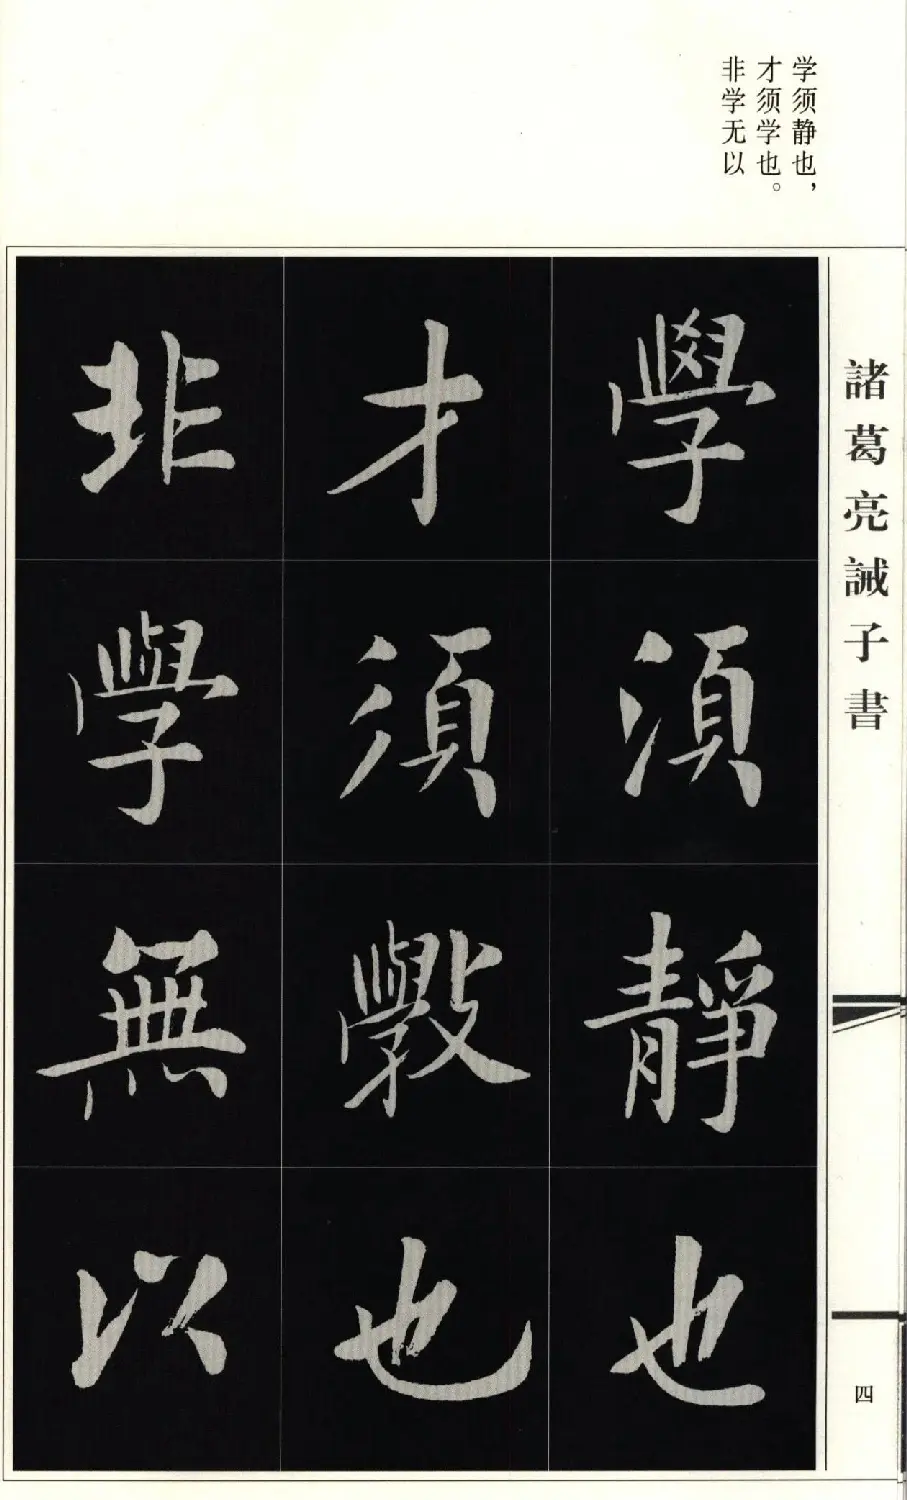 学须静也，
才须学也。
非学无以
諸葛亮誡子書
學須靜也
才須斅也
非學無以
四